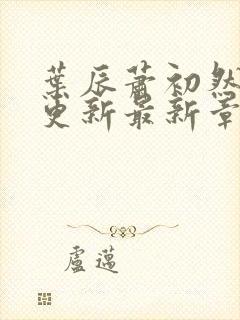 葉辰蕭初然
更新最新章
盧邁